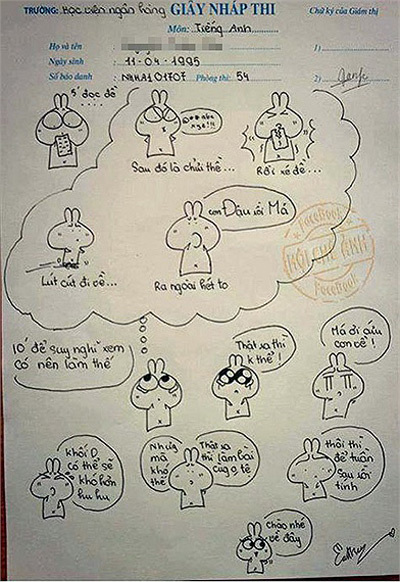 TRƯỜNG: Học viện ngân hàng GIẤY NHÁP THI
Chữ ký của Giám thị
Môn: Tiếng Anh
Họ và tên :
1)
Ngày sinh : 11-04-1995
Số báo danh : NHHA101707 Phòng thi: 54
2)
5' đọc đề
Sau đó là chửi thề...
Rồi xé đề...
con Đậu rồi Má
Lút cút đi về...
Ra ngoài hét to
FaceBook
HỘI CHẾ ẢNH
FaceBook
10' để suy nghĩ xem
có nên làm thế
Thật xa thi
k thể!
Má ơi cíu
con vế!
khối D,
có thể sẽ
khó hơn
hu hu
Nhưng
mà
khó
thế
Thật xa
thì làm bài
cũg g tê
thôi thì
để tuần
sau rồi
tính
Chào nhé
về đây